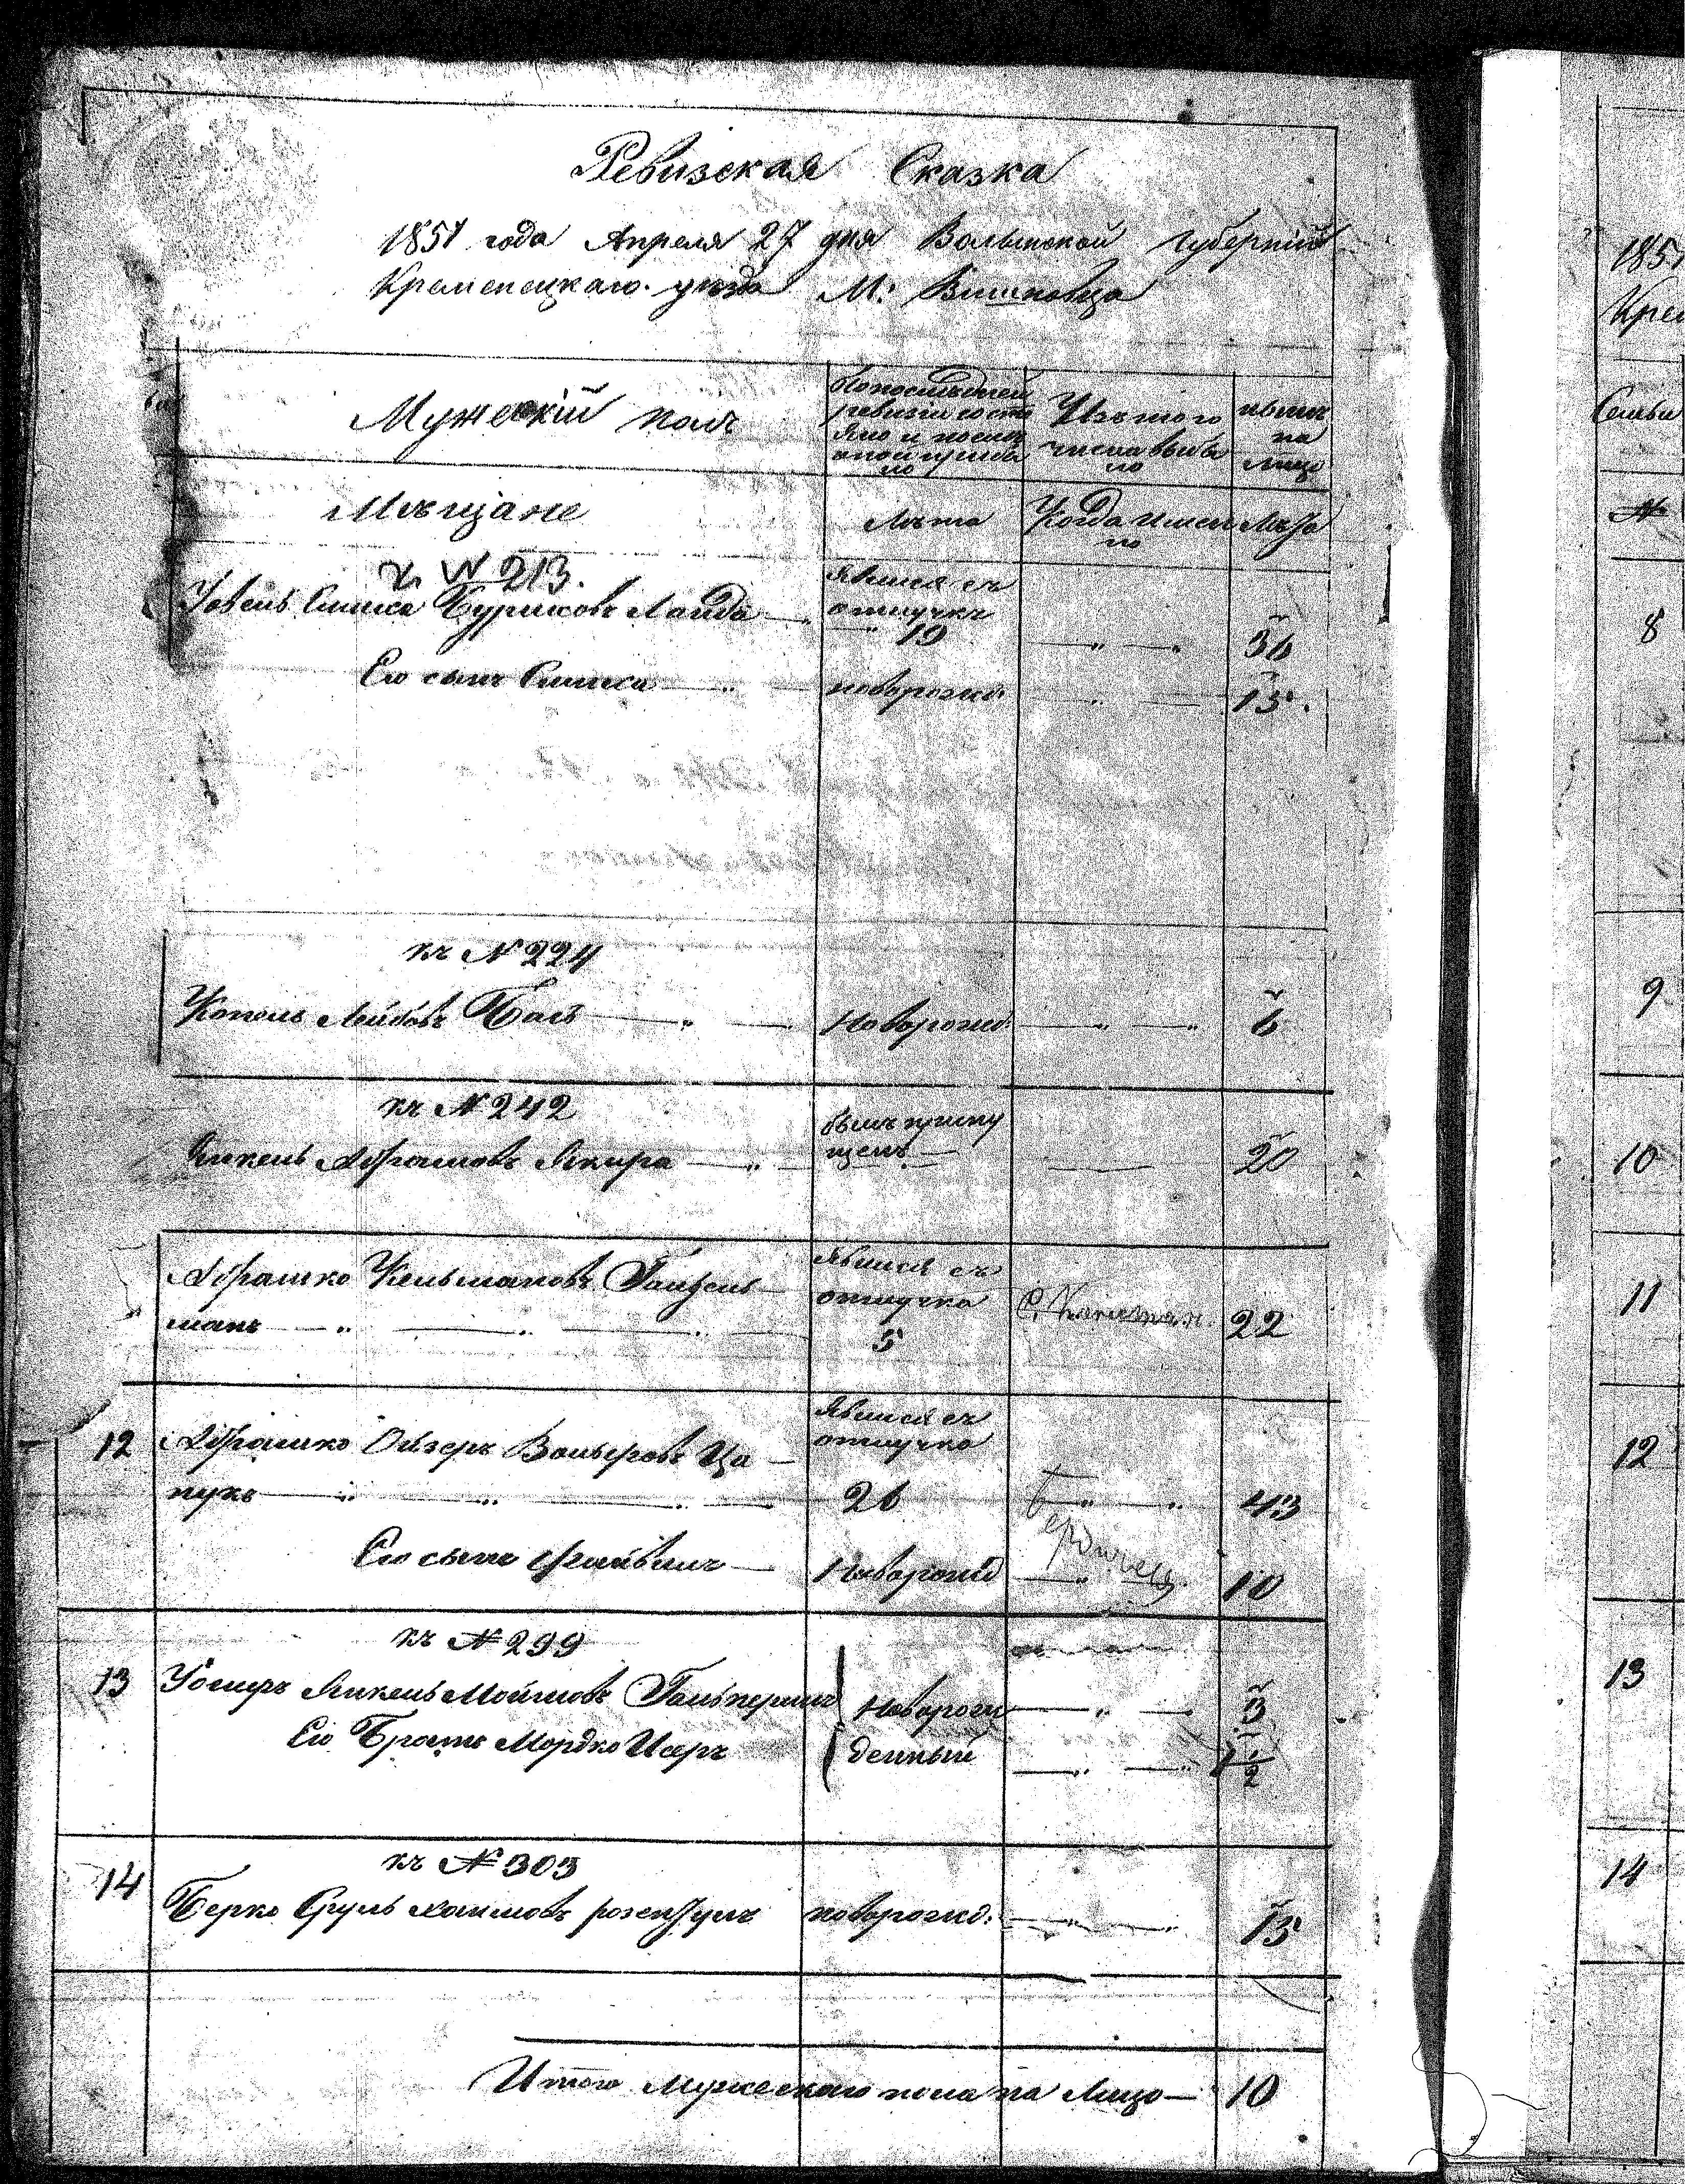 Ревизская Сказка
1851 года Апреля 27 дня Волынской губернии
Кременецкаго уезда М: Вишневца
Мужескій полъ
По последней ревизіи состояло и после оной прибыло
Изъ того числа выбыло
ныне на лицо
Мещане
Лета
Когда именно
Лета
къ N 213.
Иовель Симха Буримовъ Ланда
явился съ отлучки 19
36
Его сынъ Симха
новорожд:
15.
къ N 224
Копель Лейбовъ Балъ
Новорожд:
6
къ N 242
Янкель Абрамовъ Якира
былъ пропущенъ
20
Абрашко Кельмановъ Гамзель
манъ
явился съ отлучки
5
22
12 Абрашко Ойзеръ Вольфовъ Ца
пукъ
явился съ отлучки
26
Бердичев.
43
Его сынъ Файвель
Новорожд
10
къ N 299
13 Иосифъ Янкель Мойшовъ Гальперинъ
Новорож
3
Его Братъ Мордко Исеръ
денный
1/2
къ N 303
14 Берко Сруль Хаимовъ розенфулъ
новорожд:
15
Итого мужескаго пола на Лицо — 10
1851
Крем
Семьи
N
8
9
10
11
12
13
14